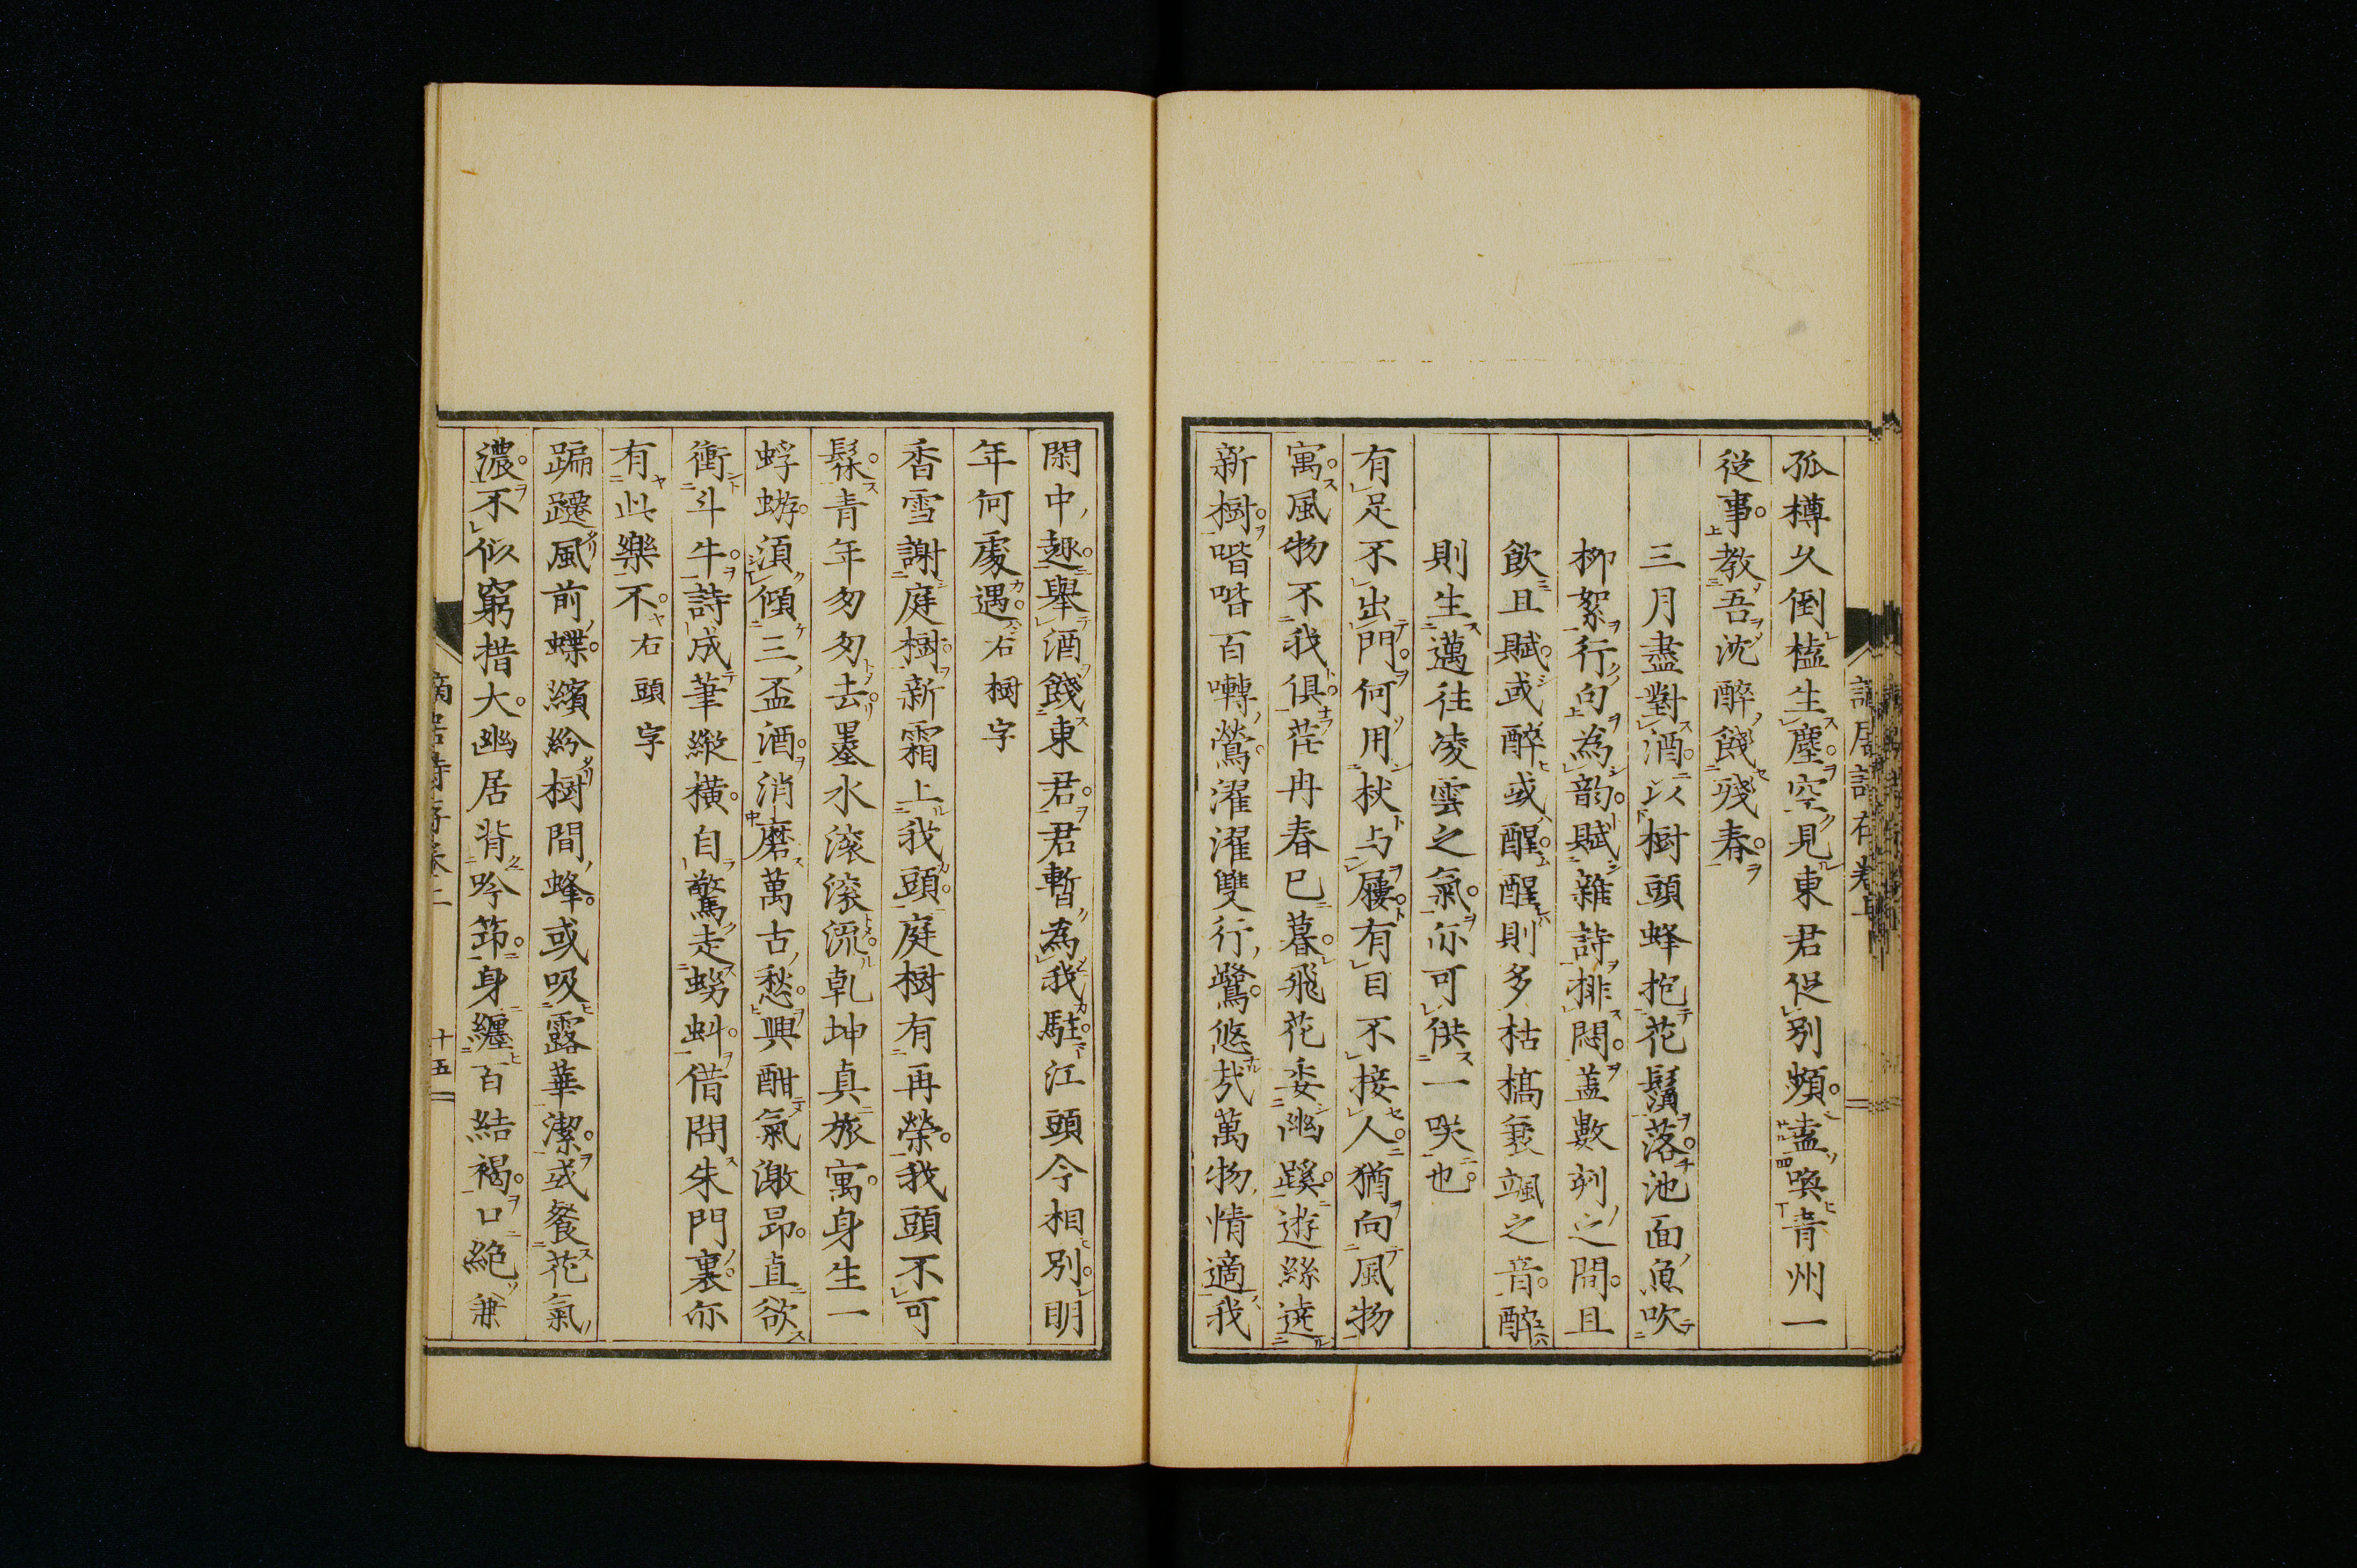 孤樽久倒榼生塵空見東君促別頻盍喚青州一
從事教吾沈醉餞殘春
三月盡對酒以樹頭蜂抱花鬚落池面魚吹
柳絮行句為韵賦雜詩排悶蓋數刻之間且
飲且賦或醉或醒醒則多枯槁衰颯之音醉
則生邁往凌雲之氣亦可供一咲也
有足不出門何用杖与屨有目不接人猶向風物
寓風物不我俱荏冉春已暮飛花委幽蹊遊絲遶
新樹喈喈百囀鶯濯濯雙行鷺悠哉萬物情適我
閑中趣舉酒餞東君君暫為我駐江頭今相別明
年何處遇右樹字
香雪謝庭樹新霜上我頭庭樹有再榮我頭不可
髹青年匆匆去墨水滾滾流乾坤真旅寓身生一
蜉蝣須傾三盃酒消磨萬古愁興酣氣激昂直欲
衝斗牛詩成筆縱横自驚走蛃蚪借問朱門裏亦
有此樂不右頭字
蹁躚風前蝶繽紛樹間蜂或吸露華潔或餐花氣
濃不似窮措大幽居背吟筇身纏百結褐口絕兼
謫居詩存卷二
十五